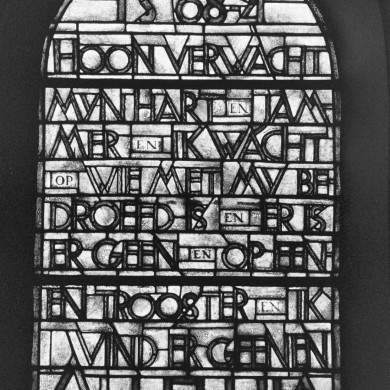 68
HOON VERWACHT
MYN HART EN JAM
MER EN IK WACHT
OP WIE MET MY BE
DROEFD IS EN ER IS
ER GEEN EN OP EEN
EN TROOSTER EN IK
VIND ER GEENEN